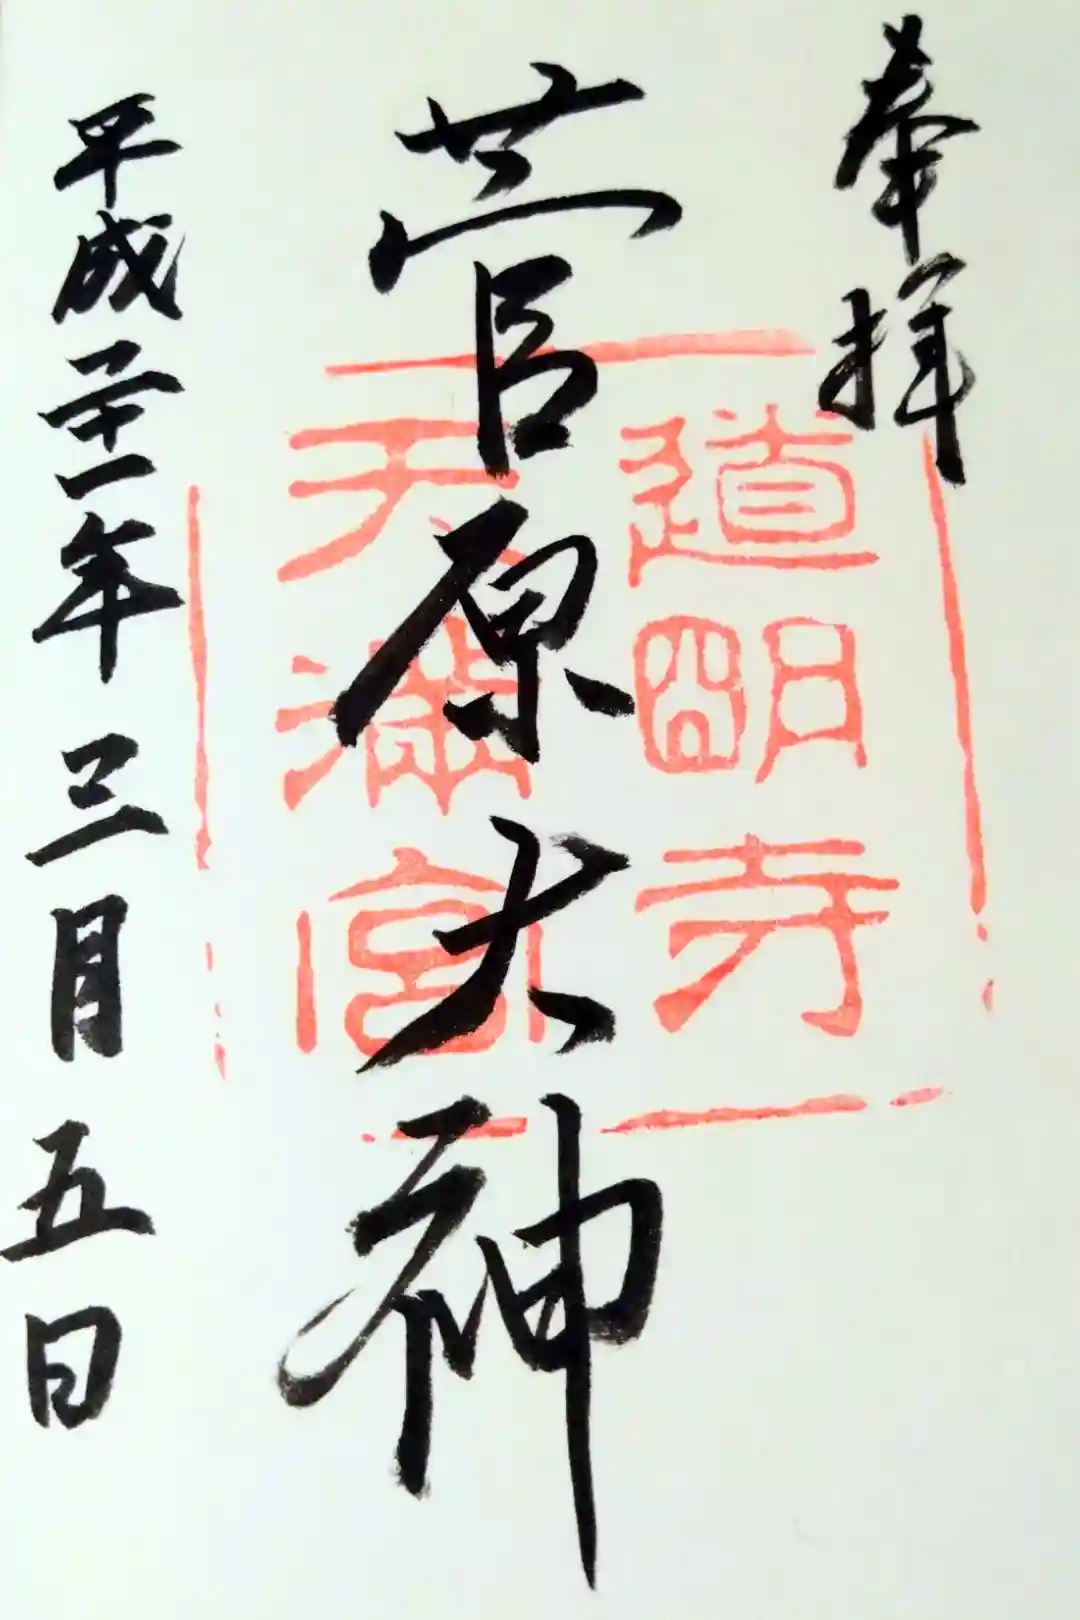 奉拝
菅原大神
道明寺
天満宮
平成二十一年三月五日